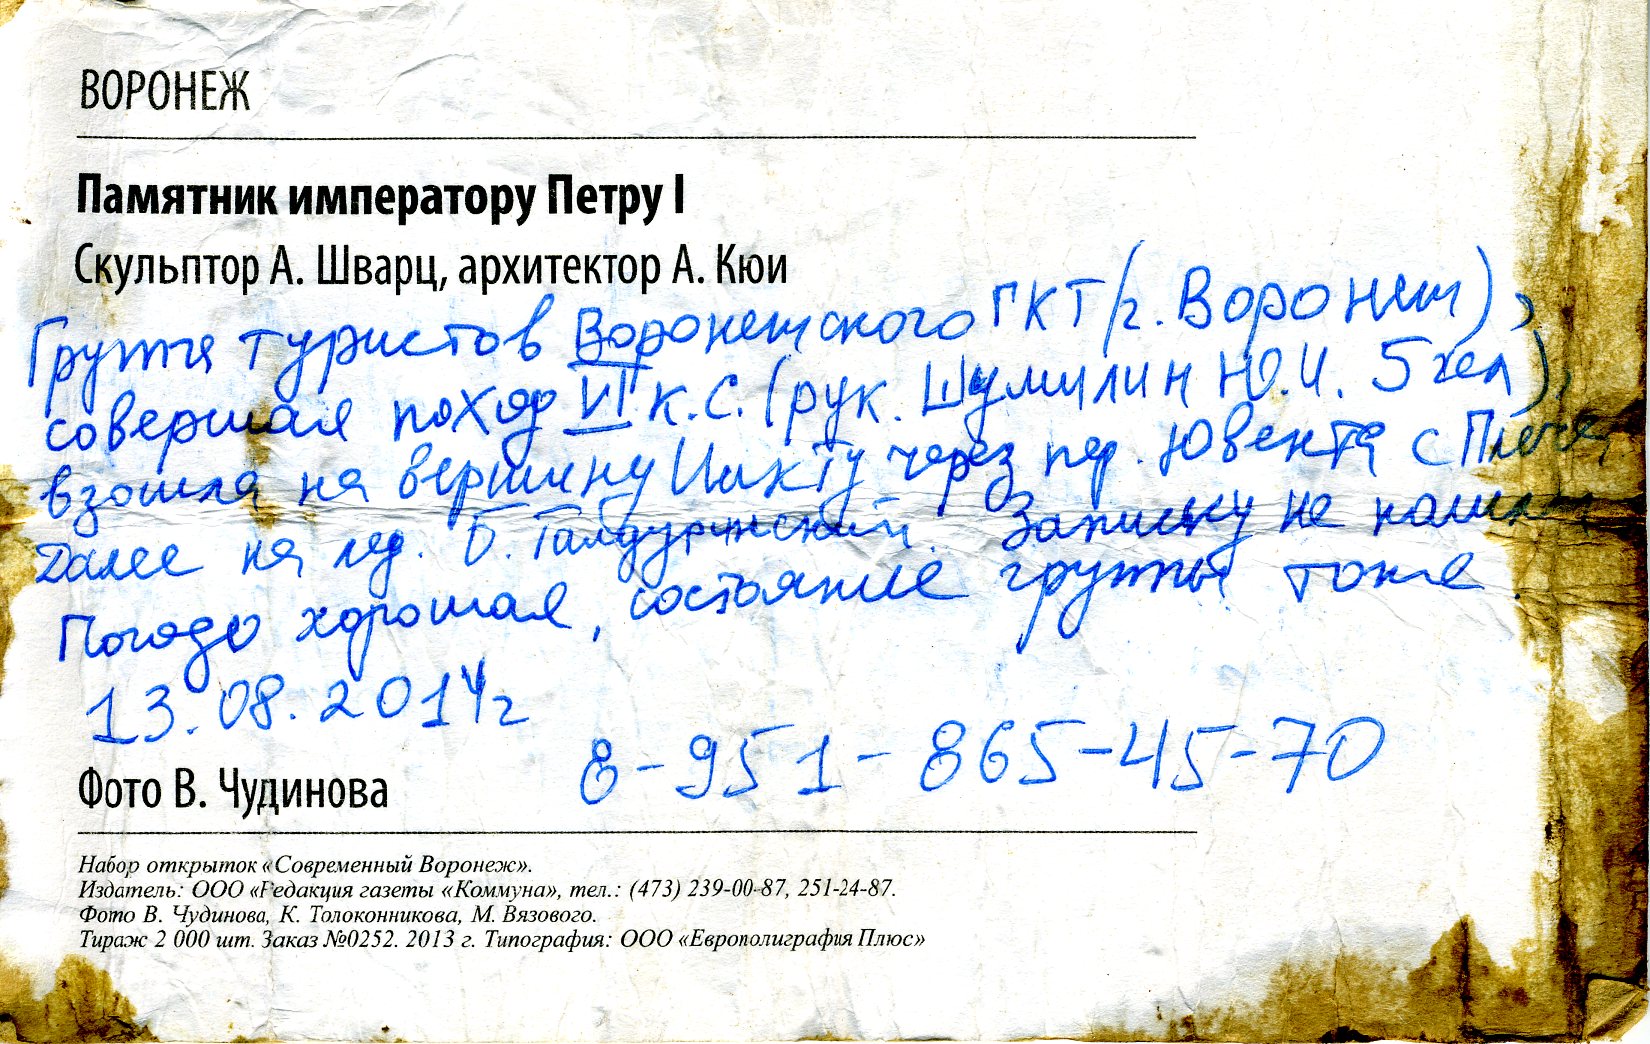 ВОРОНЕЖ
Памятник императору Петру I
Скульптор А. Шварц, архитектор А. Кюи
Группа туристов Воронежского ГКТ (г. Воронеж),
совершая поход VI к.с. (рук. Шумилин Ю.И. 5 чел),
взошла на вершину Иикту через пер. Ювента с Плеча
Далее на лед. Б. Талдуринский. Записку не нашли
Погода хорошая, состояние группы тоже.
13.08.2014г
8-951-865-45-70
Фото В. Чудинова
Набор открыток «Современный Воронеж».
Издатель: ООО «Редакция газеты «Коммуна», тел.: (473) 239-00-87, 251-24-87.
Фото В. Чудинова, К. Толоконникова, М. Вязового.
Тираж 2 000 шт. Заказ №0252. 2013 г. Типография: ООО «Европолиграфия Плюс»